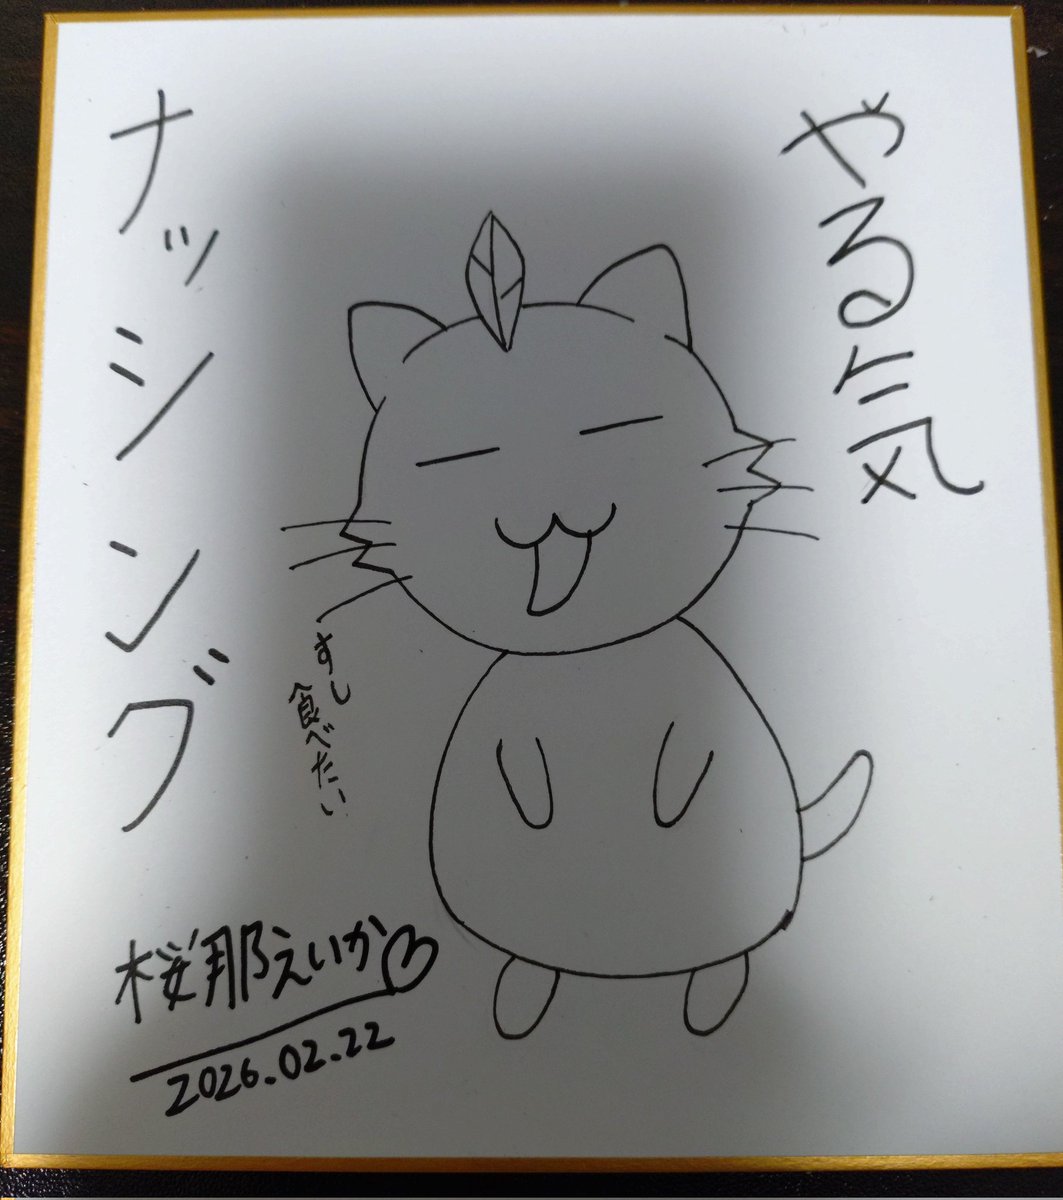 やる気
ナッシング
すし
食べたい
桜那えいか
2026.02.22